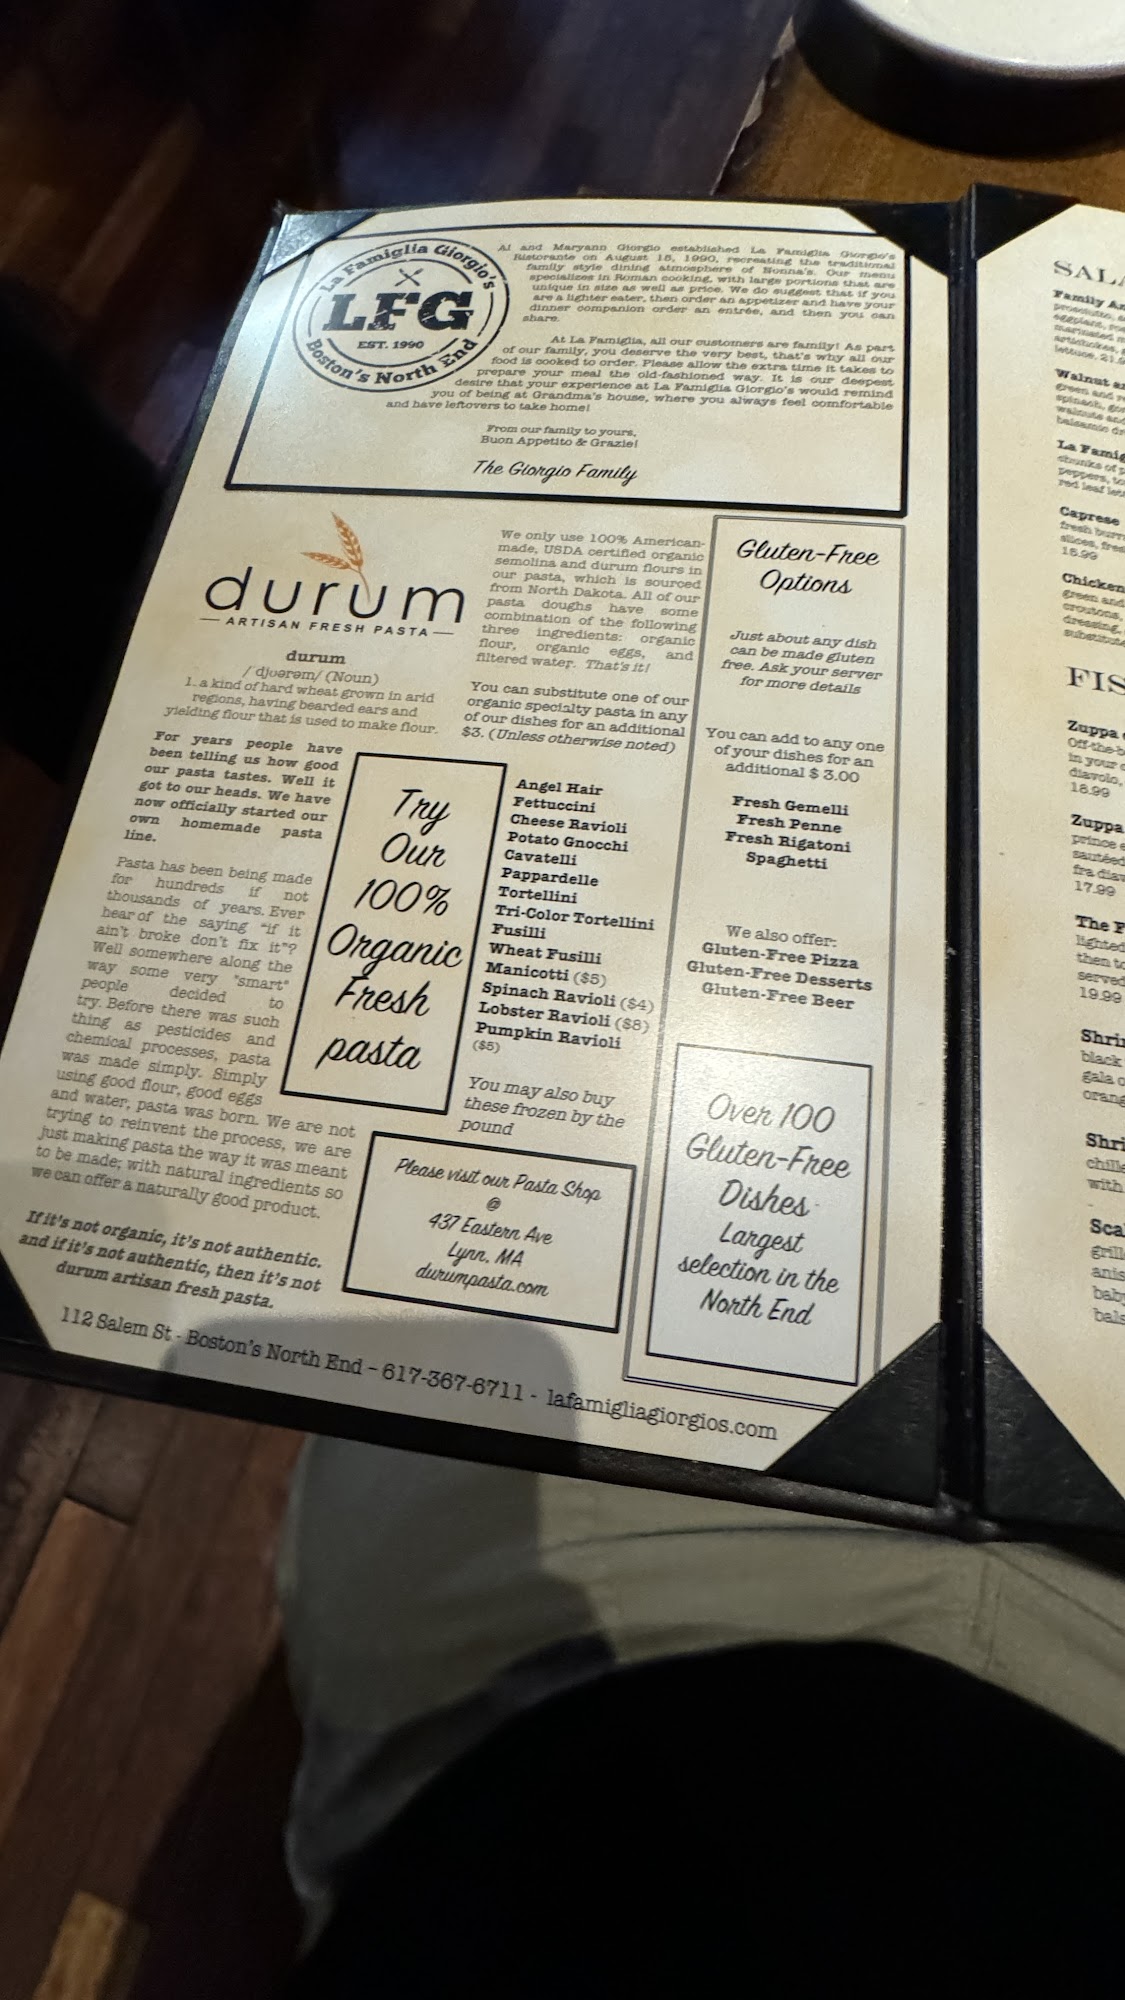 La Famiglia Giorgio's
LFG
EST. 1990
Boston's North End
Al and Maryann Giorgio established La Famiglia Giorgio's
Ristorante on August 15, 1990, recreating the traditional
family style dining atmosphere of Nonna's. Our menu
specializes in Roman cooking, with large portions that are
unique in size as well as price. We do suggest that if you
are a lighter eater, then order an appetizer and have your
dinner companion order an entrée, and then you can
share.
At La Famiglia, all our customers are family! As part
of our family, you deserve the very best, that's why all our
food is cooked to order. Please allow the extra time it takes to
prepare your meal the old-fashioned way. It is our deepest
desire that your experience at La Famiglia Giorgio's would remind
you of being at Grandma's house, where you always feel comfortable
and have leftovers to take home!
From our family to yours,
Buon Appetito & Grazie!
The Giorgio Family
durum
ARTISAN FRESH PASTA
durum
/ djʊərəm/ (Noun)
1. a kind of hard wheat grown in arid
regions, having bearded ears and
yielding flour that is used to make flour.
For years people have
been telling us how good
our pasta tastes. Well it
got to our heads. We have
now officially started our
own homemade pasta
line.
Pasta has been being made
for hundreds if not
thousands of years. Ever
hear of the saying "if it
ain't broke don't fix it"?
Well somewhere along the
way some very "smart"
people decided to
try. Before there was such
thing as pesticides and
chemical processes, pasta
was made simply. Simply
using good flour, good eggs
and water, pasta was born. We are not
trying to reinvent the process, we are
just making pasta the way it was meant
to be made; with natural ingredients so
we can offer a naturally good product.
If it's not organic, it's not authentic.
and if it's not authentic, then it's not
durum artisan fresh pasta.
We only use 100% American-
made, USDA certified organic
semolina and durum flours in
our pasta, which is sourced
from North Dakota. All of our
pasta doughs have some
combination of the following
three ingredients: organic
flour, organic eggs, and
filtered water. That's it!
You can substitute one of our
organic specialty pasta in any
of our dishes for an additional
$3. (Unless otherwise noted)
Try
Our
100%
Organic
Fresh
pasta
Angel Hair
Fettuccini
Cheese Ravioli
Potato Gnocchi
Cavatelli
Pappardelle
Tortellini
Tri-Color Tortellini
Fusilli
Wheat Fusilli
Manicotti ($5)
Spinach Ravioli ($4)
Lobster Ravioli ($8)
Pumpkin Ravioli
($5)
You may also buy
these frozen by the
pound
Please visit our Pasta Shop
@
437 Eastern Ave
Lynn, MA
durumpasta.com
Gluten-Free
Options
Just about any dish
can be made gluten
free. Ask your server
for more details
You can add to any one
of your dishes for an
additional $ 3.00
Fresh Gemelli
Fresh Penne
Fresh Rigatoni
Spaghetti
We also offer:
Gluten-Free Pizza
Gluten-Free Desserts
Gluten-Free Beer
Over 100
Gluten-Free
Dishes
Largest
selection in the
North End
112 Salem St - Boston's North End - 617-367-6711 - lafamigliagiorgios.com
Family
lettuce, 21
Walnut
green and
spinach,
walnuts and
balsamic
La
chunks of
peppers,
red leaf
Caprese
fresh
slices,
15.99
Chicken
green and
croutons,
dressing,
Zuppa
in your
diavolo,
18.99
Zuppa
prince
fra
17.99
The
lighted
then to
served
19.99
black
gala
with